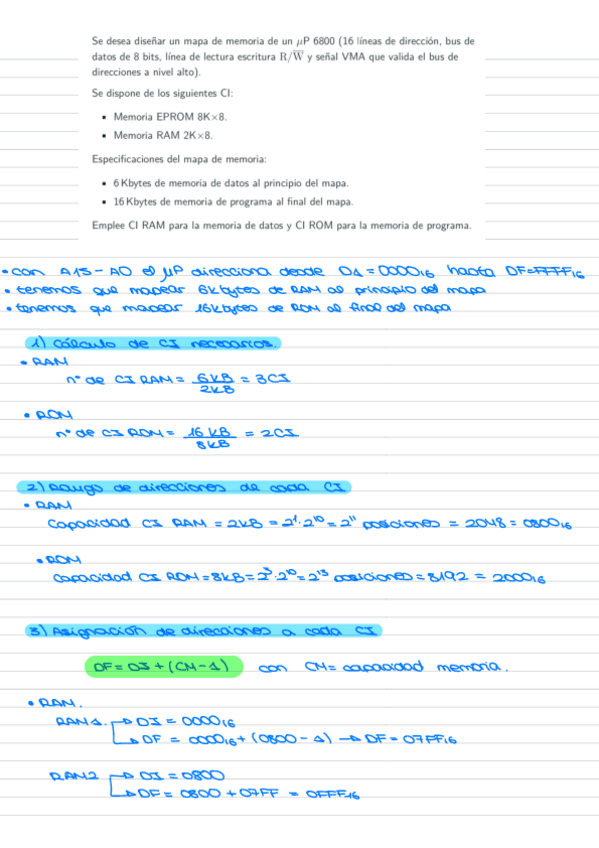 Se desea diseñar un mapa de memoria de un μP 6800 (16 líneas de dirección, bus de
datos de 8 bits, línea de lectura escritura R/W̅ y señal VMA que valida el bus de
direcciones a nivel alto).
Se dispone de los siguientes CI:
• Memoria EPROM 8K×8.
• Memoria RAM 2K×8.
Especificaciones del mapa de memoria:
• 6 Kbytes de memoria de datos al principio del mapa.
• 16 Kbytes de memoria de programa al final del mapa.
Emplee CI RAM para la memoria de datos y CI ROM para la memoria de programa.
• con A15-A0 el μP direcciona desde D1=0000₁₆ hasta DF=FFFF₁₆
• tenemos que mapear 6kbytes de RAM al principio del mapa
• tenemos que mapear 16kbytes de ROM al final del mapa
1) Cálculo de CI necesarios.
• RAM
nº de CI RAM = 6KB / 2KB = 3CI
• ROM
nº de CI ROM = 16 KB / 8KB = 2CI
2) Rango de direcciones de cada CI
• RAM
Capacidad CI RAM = 2KB = 2¹·2¹⁰ = 2¹¹ posiciones = 2048 = 0800₁₆
• ROM
Capacidad CI ROM = 8KB = 2³·2¹⁰ = 2¹³ posiciones = 8192 = 2000₁₆
3) Asignación de direcciones a cada CI
DF = DI + (CM-1) con CM = capacidad memoria.
• RAM.
RAM1. → DI = 0000₁₆
→ DF = 0000₁₆ + (0800 - 1) → DF = 07FF₁₆
RAM2 → DI = 0800
→ DF = 0800 + 07FF = 0FFF₁₆